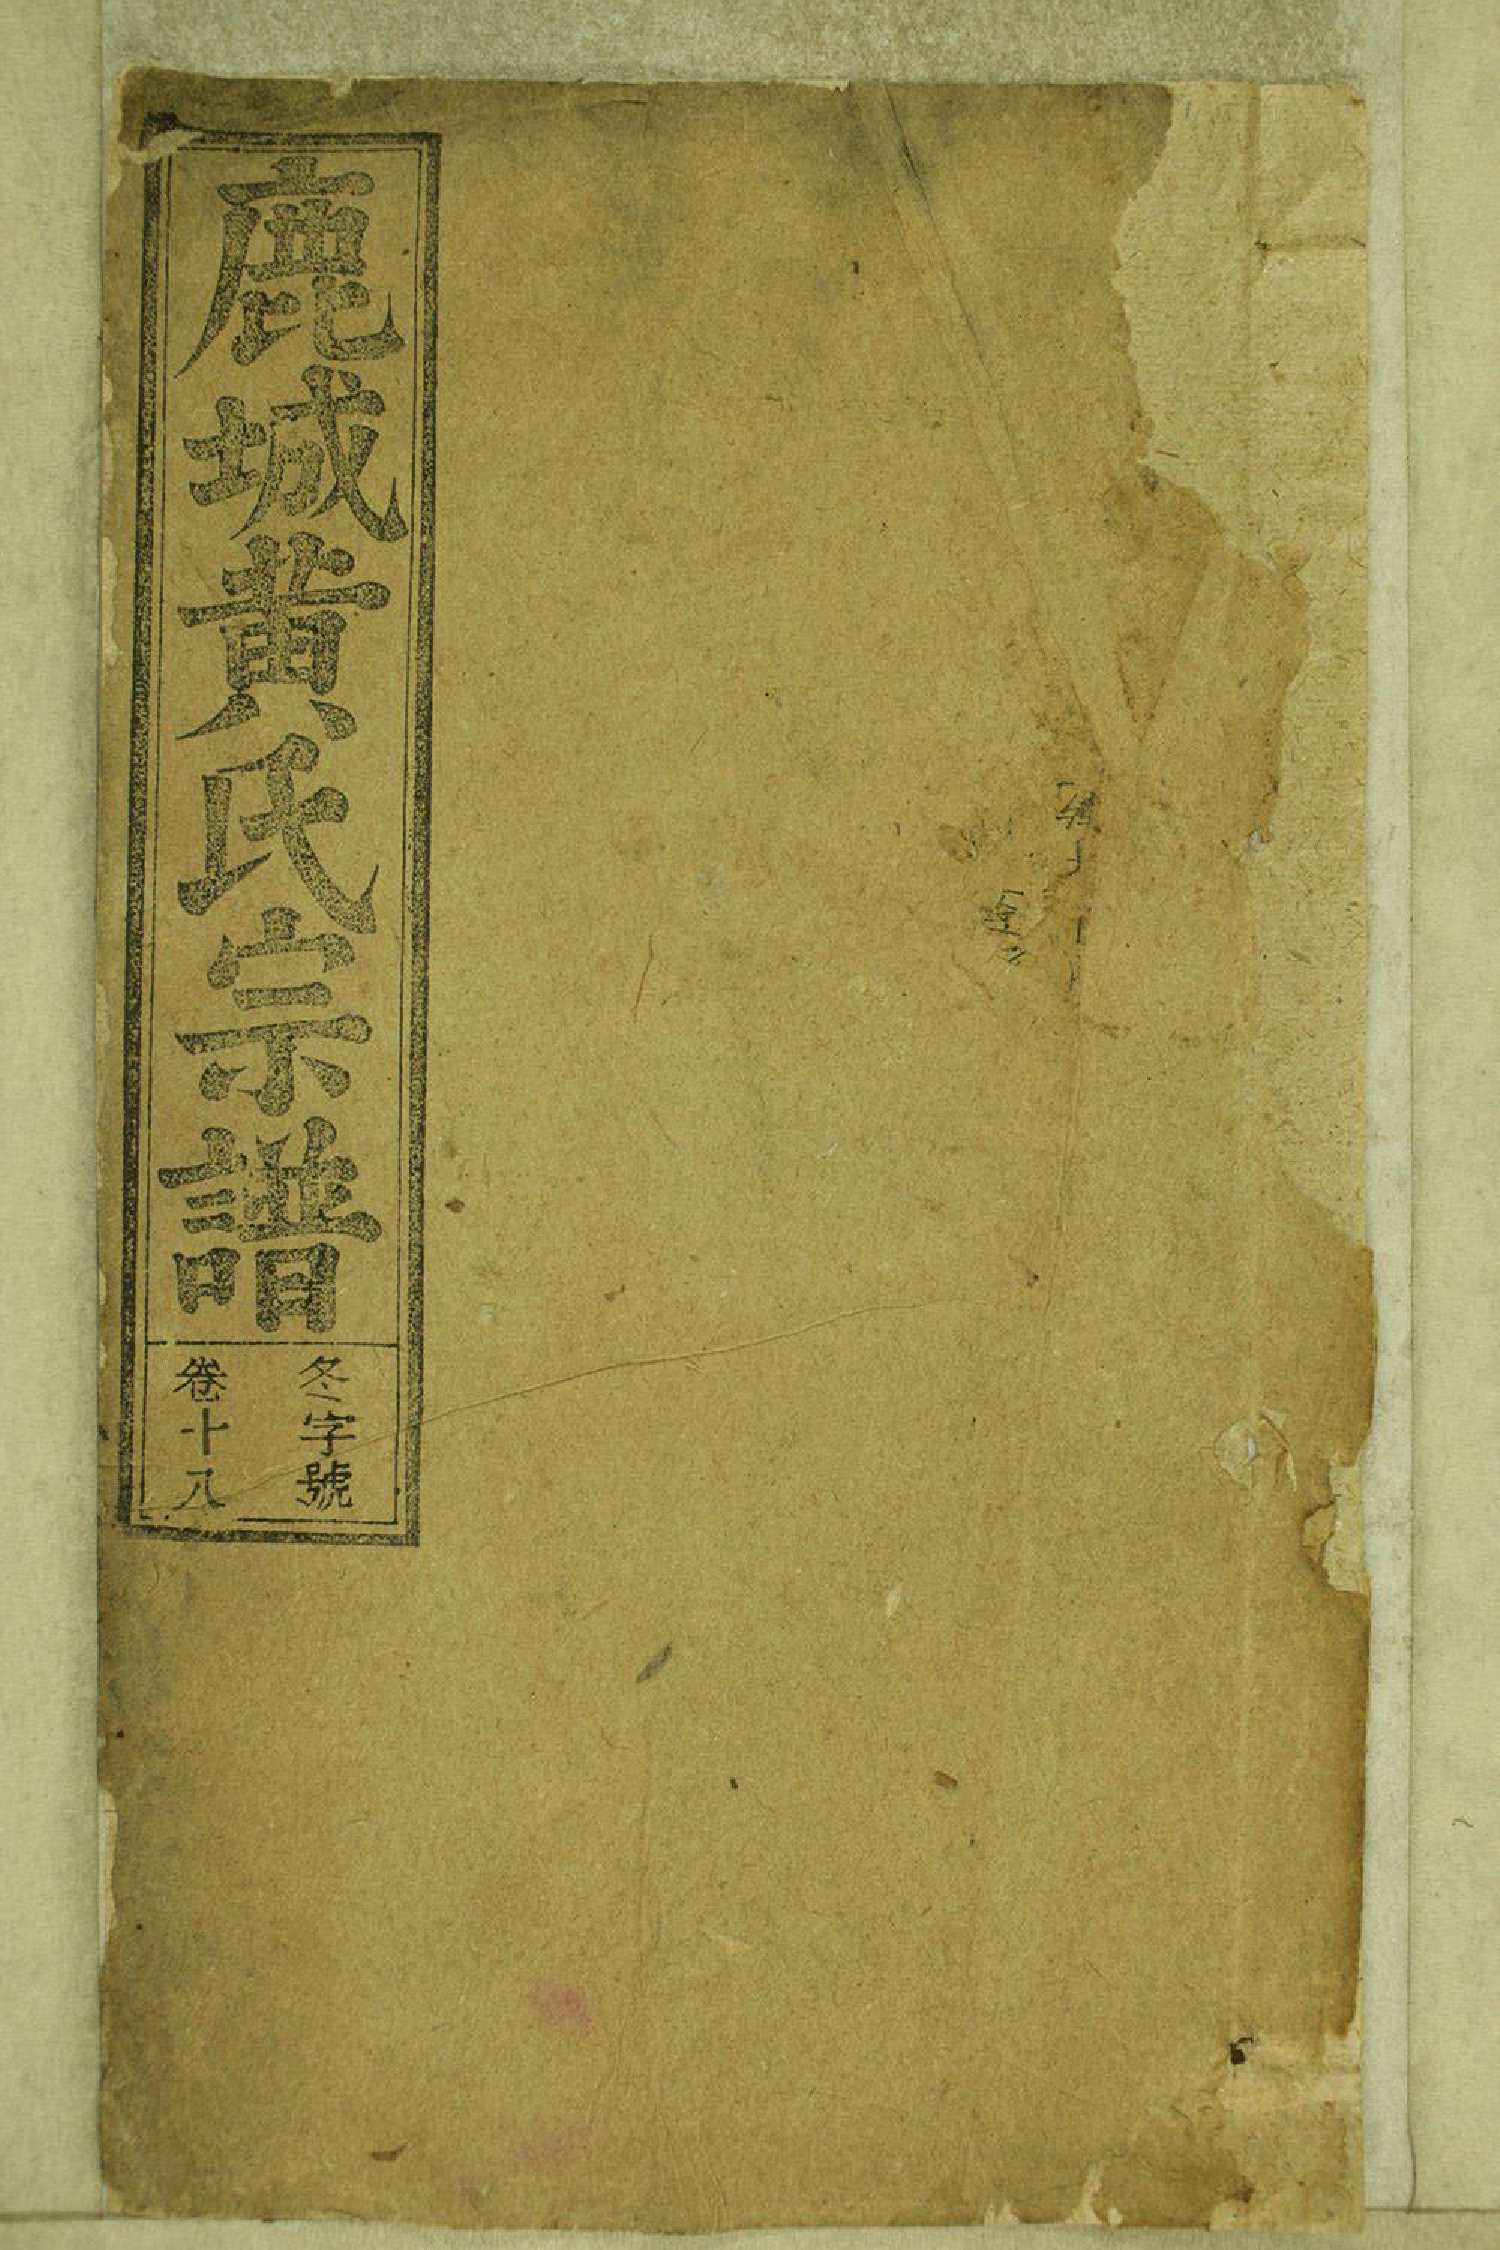 鹿城黄氏宗譜
冬字號
卷十八